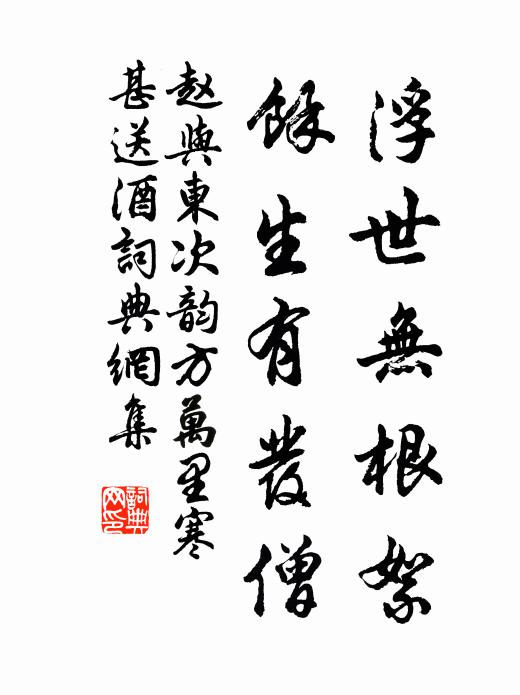 浮世無根絮
餘生有發僧
赵與東次韵方萬里寒
甚送酒詞典網集
詞典网印